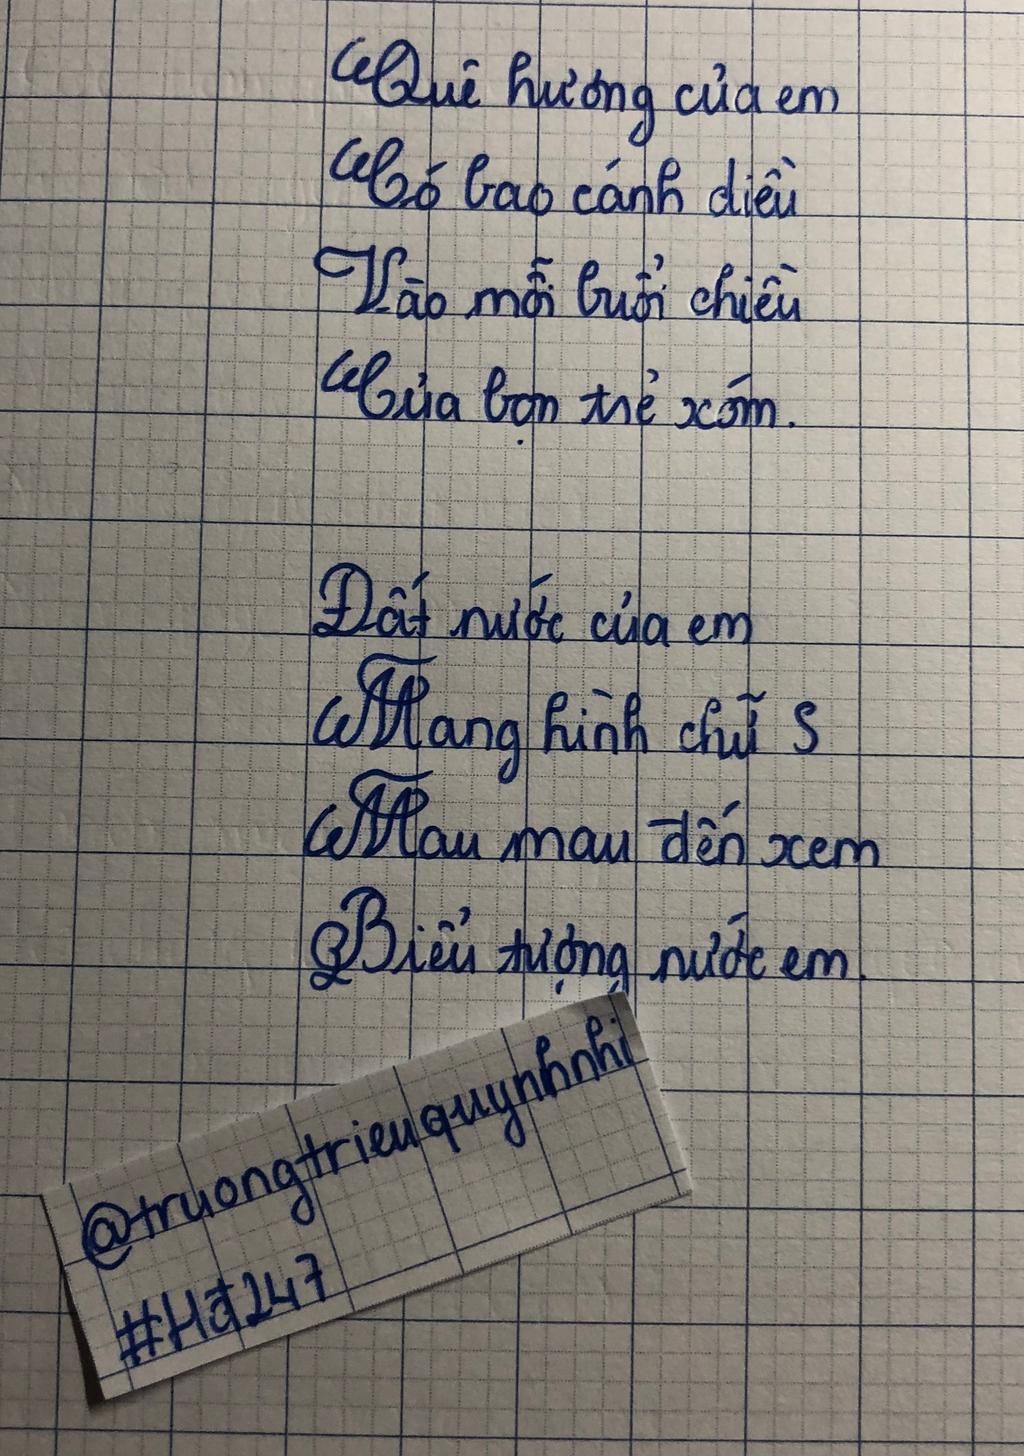 Quê hương của em
Có bao cánh diều
Vào mỗi buổi chiều
Của bọn trẻ xóm.
Đất nước của em
Mang hình chữ S
Mau mau đến xem
Biểu tượng nước em.
@truongtrieuquynhnhi
#Hđ247